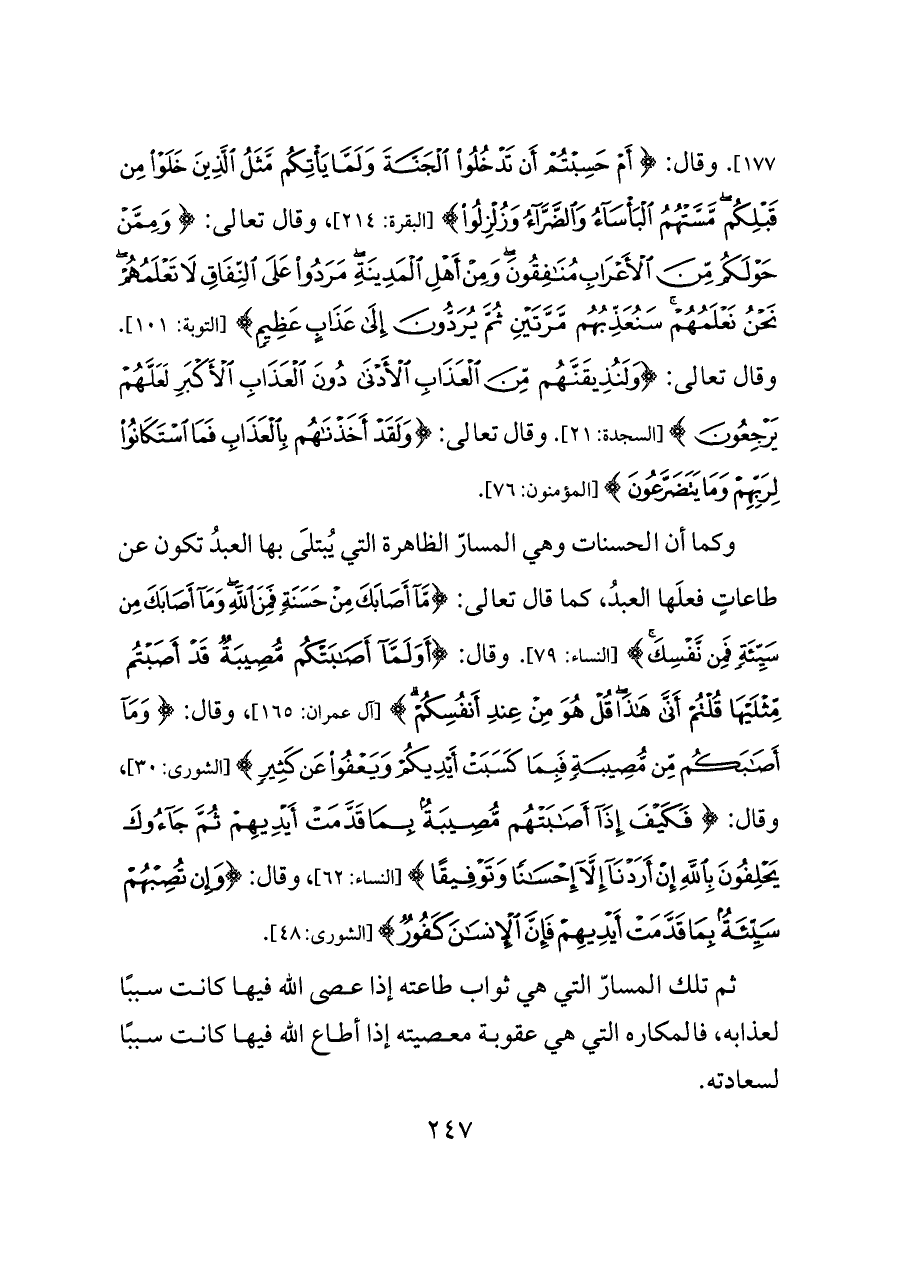 ١٧٧]. وقال: ﴿ أَمْ حَسِبْتُمْ أَن تَدْخُلُواْ ٱلْجَنَّةَ وَلَمَّا يَأْتِكُم مَّثَلُ ٱلَّذِينَ خَلَوْاْ مِن
قَبْلِكُم ۖ مَّسَّتْهُمُ ٱلْبَأْسَآءُ وَٱلضَّرَّآءُ وَزُلْزِلُواْ ﴾ [البقرة: ٢١٤]، وقال تعالى: ﴿ وَمِمَّنْ
حَوْلَكُم مِّنَ ٱلْأَعْرَابِ مُنَٰفِقُونَ ۖ وَمِنْ أَهْلِ ٱلْمَدِينَةِ ۖ مَرَدُواْ عَلَى ٱلنِّفَاقِ لَا تَعْلَمُهُمْ ۖ
نَحْنُ نَعْلَمُهُمْ ۚ سَنُعَذِّبُهُم مَّرَّتَيْنِ ثُمَّ يُرَدُّونَ إِلَىٰ عَذَابٍ عَظِيمٍ ﴾ [التوبة: ١٠١].
وقال تعالى: ﴿ وَلَنُذِيقَنَّهُم مِّنَ ٱلْعَذَابِ ٱلْأَدْنَىٰ دُونَ ٱلْعَذَابِ ٱلْأَكْبَرِ لَعَلَّهُمْ
يَرْجِعُونَ ﴾ [السجدة: ٢١]. وقال تعالى: ﴿ وَلَقَدْ أَخَذْنَٰهُم بِٱلْعَذَابِ فَمَا ٱسْتَكَانُواْ
لِرَبِّهِمْ وَمَا يَتَضَرَّعُونَ ﴾ [المؤمنون: ٧٦].
وكما أن الحسنات وهي المسارّ الظاهرة التي يُبتلَى بها العبدُ تكون عن
طاعاتٍ فعلَها العبدُ، كما قال تعالى: ﴿ مَّآ أَصَابَكَ مِنْ حَسَنَةٍ فَمِنَ ٱللَّهِ ۖ وَمَآ أَصَابَكَ مِن
سَيِّئَةٍ فَمِن نَّفْسِكَ ۚ ﴾ [النساء: ٧٩]. وقال: ﴿ أَوَلَمَّآ أَصَٰبَتْكُم مُّصِيبَةٌ قَدْ أَصَبْتُم
مِّثْلَيْهَا قُلْتُمْ أَنَّىٰ هَٰذَا ۖ قُلْ هُوَ مِنْ عِندِ أَنفُسِكُمْ ۗ ﴾ [آل عمران: ١٦٥]، وقال: ﴿ وَمَآ
أَصَٰبَكُم مِّن مُّصِيبَةٍ فَبِمَا كَسَبَتْ أَيْدِيكُمْ وَيَعْفُواْ عَن كَثِيرٍ ﴾ [الشورى: ٣٠]،
وقال: ﴿ فَكَيْفَ إِذَآ أَصَٰبَتْهُم مُّصِيبَةٌۢ بِمَا قَدَّمَتْ أَيْدِيهِمْ ثُمَّ جَآءُوكَ
يَحْلِفُونَ بِٱللَّهِ إِنْ أَرَدْنَآ إِلَّآ إِحْسَٰنًا وَتَوْفِيقًا ﴾ [النساء: ٦٢]، وقال: ﴿ وَإِن تُصِبْهُمْ
سَيِّئَةٌۢ بِمَا قَدَّمَتْ أَيْدِيهِمْ فَإِنَّ ٱلْإِنسَٰنَ كَفُورٌ ﴾ [الشورى: ٤٨].
ثم تلك المسارّ التي هي ثواب طاعته إذا عصى الله فيها كانت سببًا
لعذابه، فالمكاره التي هي عقوبة معصيته إذا أطاع الله فيها كانت سببًا
لسعادته.
٢٤٧